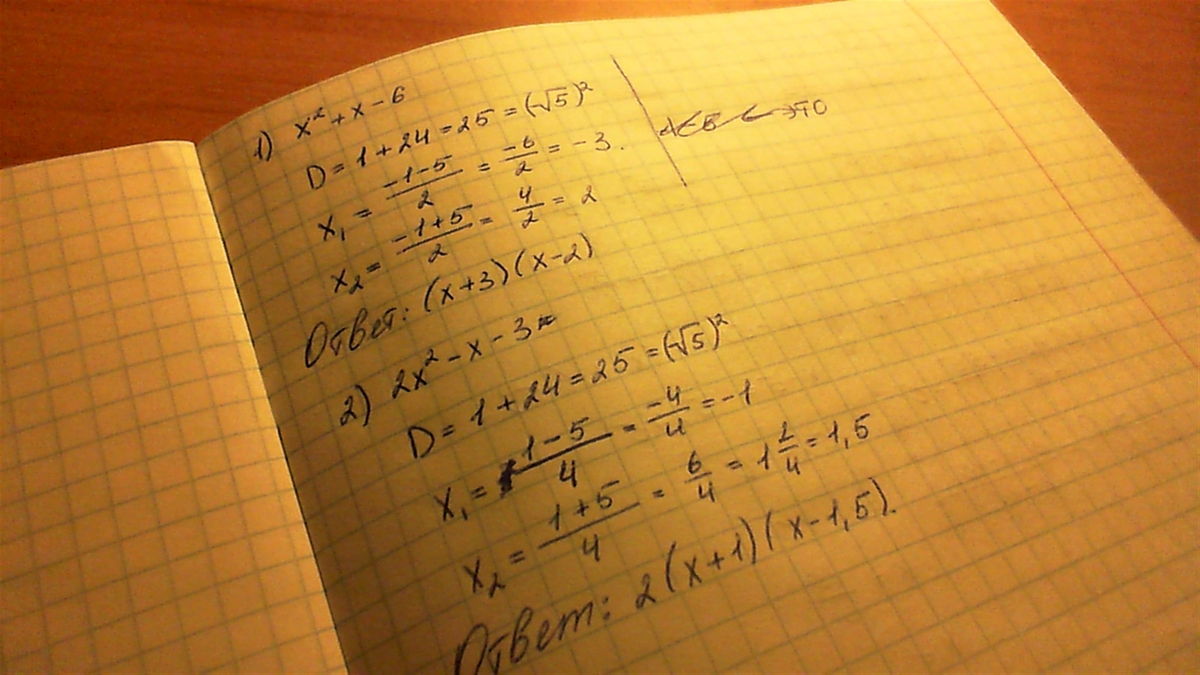 1) x² + x - 6
D = 1 + 24 = 25 = (√5)²
x₁ = \frac{-1-5}{2} = \frac{-6}{2} = -3.
x₂ = \frac{-1+5}{2} = \frac{4}{2} = 2
Ответ: (x+3)(x-2)
2) 2x² - x - 3
D = 1 + 24 = 25 = (√5)²
x₁ = \frac{1-5}{4} = \frac{-4}{4} = -1
x₂ = \frac{1+5}{4} = \frac{6}{4} = 1\frac{2}{4} = 1,5
Ответ: 2(x+1)(x-1,5).